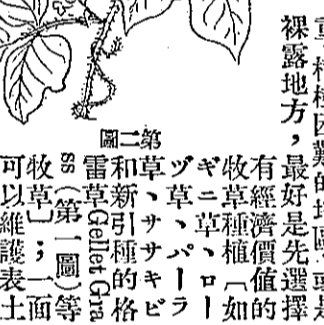 裸露地方，最好是先選擇
有經濟價值的
牧草種植〔如
ギニ草、ロー
ヅ草、パーラ
草、ササキビ
和新引種的格
雷草Gellet Gra
ss（第一圖）等
牧草〕；一面
可以維護表土
第二圖